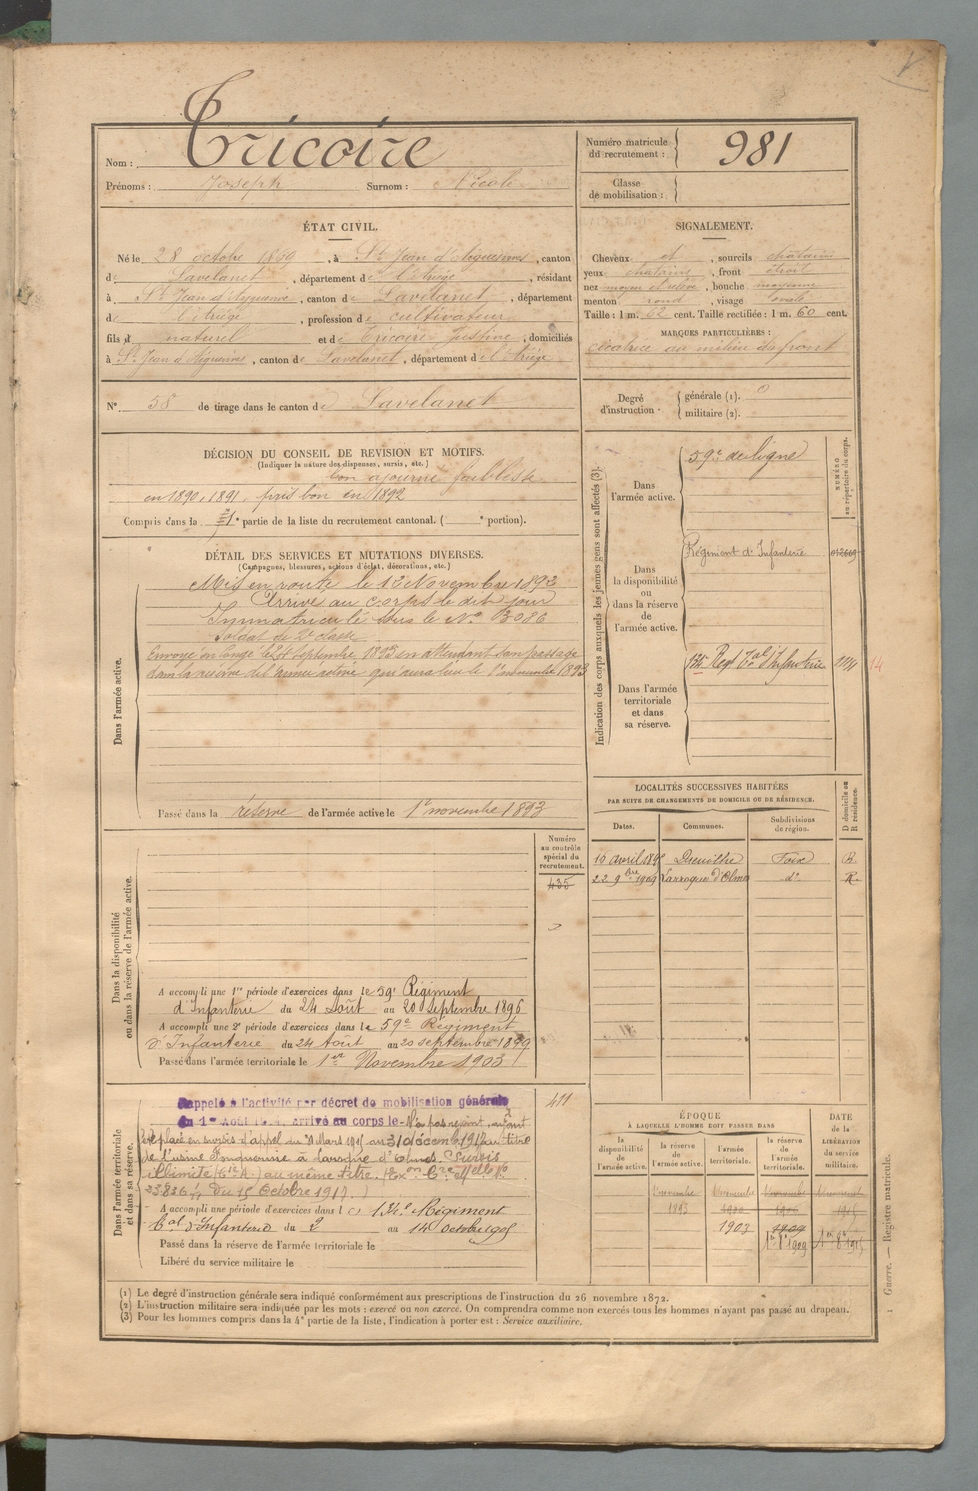 Nom : Tricoire
Prénoms : Joseph Surnom : Nicol
ÉTAT CIVIL.
Né le 28 octobre 1869, à St Jean d'Aiguesvives, canton
de Lavelanet, département de l'Ariège, résidant
à St Jean d'Aiguesvives, canton de Lavelanet, département
de l'Ariège, profession de cultivateur
fils d naturel et de Tricoire Justine, domiciliés
à St Jean d'Aiguesvives, canton de Lavelanet, département de l'Ariège
N° 58 de tirage dans le canton de Lavelanet
Numéro matricule
du recrutement : 981
Classe
de mobilisation :
SIGNALEMENT.
Cheveux et, sourcils chatains
yeux chatains, front étroit
nez moyen et relevé, bouche moyenne
menton rond, visage ovale
Taille : 1 m. 62 cent. Taille rectifiée : 1 m. 60 cent.
MARQUES PARTICULIÈRES :
cicatrice au milieu du front
Degré
d'instruction. générale (1). 0
militaire (2).
DÉCISION DU CONSEIL DE REVISION ET MOTIFS.
(Indiquer la nature des dispenses, sursis, etc.)
bon ajourné faiblesse
en 1890, 1891, pris bon en 1892
Compris dans la 1e partie de la liste du recrutement cantonal. ( e portion).
DÉTAIL DES SERVICES ET MUTATIONS DIVERSES.
(Campagnes, blessures, actions d'éclat, décorations, etc.)
Dans l'armée active.
Mis en route le 12 Novembre 1892
Arrivé au corps le dit jour
Immatriculé sous le N° 3086
Soldat de 2e classe
Envoyé en congé le 24 septembre 1893 en attendant son passage
dans la réserve de l'armée active qui aura lieu le 1er novembre 1893
Passé dans la réserve de l'armée active le 1er novembre 1893
Indication des corps auxquels les jeunes gens sont affectés (3).
NUMÉRO
au répertoire du corps.
Dans
l'armée active.
59e de ligne
Dans
la disponibilité
ou
dans la réserve
de
l'armée active.
Régiment d'Infanterie
Dans l'armée
territoriale
et dans
sa réserve.
134e Regt Tal d'Infanterie 14
LOCALITÉS SUCCESSIVES HABITÉES
PAR SUITE DE CHANGEMENTS DE DOMICILE OU DE RÉSIDENCE.
Dates. Communes. Subdivisions
de région. D domicile ou
R résidence.
19 avril 1895 Dreuilhe Foix R.
22 9bre 1909 Laroque d'Olmes d° R.
Dans la disponibilité
ou dans la réserve de l'armée active.
Numéro
au contrôle
spécial du
recrutement.
435
A accompli une 1re période d'exercices dans le 59e Régiment
d'Infanterie du 24 Août au 20 Septembre 1896
A accompli une 2e période d'exercices dans le 59e Régiment
d'Infanterie du 24 Août au 20 septembre 1899
Passé dans l'armée territoriale le 1er Novembre 1903
Dans l'armée territoriale
et dans sa réserve.
411
Rappelé à l'activité par décret de mobilisation générale
du 1er Août 1914, arrivé au corps le N'a pas rejoint, ayant
été placé en sursis d'appel du Mars 1915 au 31 décembre 1917 au titre
de l'usine à Laroque d'Olmes. Sursis
illimité (Cie A) au même titre. (Exon Cre Mlle No
33.836 du 15 Octobre 1917.)
A accompli une période d'exercices dans l e 134e Régiment
tal d'Infanterie du 2 au 14 Octobre 1905
Passé dans la réserve de l'armée territoriale le
Libéré du service militaire le
ÉPOQUE
À LAQUELLE L'HOMME DOIT PASSER DANS
DATE
de la
LIBÉRATION
du service
militaire.
la
disponibilité
de
l'armée active.
la
réserve
de
l'armée active.
l'armée
territoriale.
la réserve
de
l'armée
territoriale.
1 novembre 1 novembre 1 novembre 1 novembre
1893 1900 1906 1915
1903 1909
1er 8e 1909 1er 8e 1915
(1) Le degré d'instruction générale sera indiqué conformément aux prescriptions de l'instruction du 26 novembre 1872.
(2) L'instruction militaire sera indiquée par les mots : exercé ou non exercé. On comprendra comme non exercés tous les hommes n'ayant pas passé au drapeau.
(3) Pour les hommes compris dans la 4e partie de la liste, l'indication à porter est : Service auxiliaire.
1 Guerre. — Registre matricule.